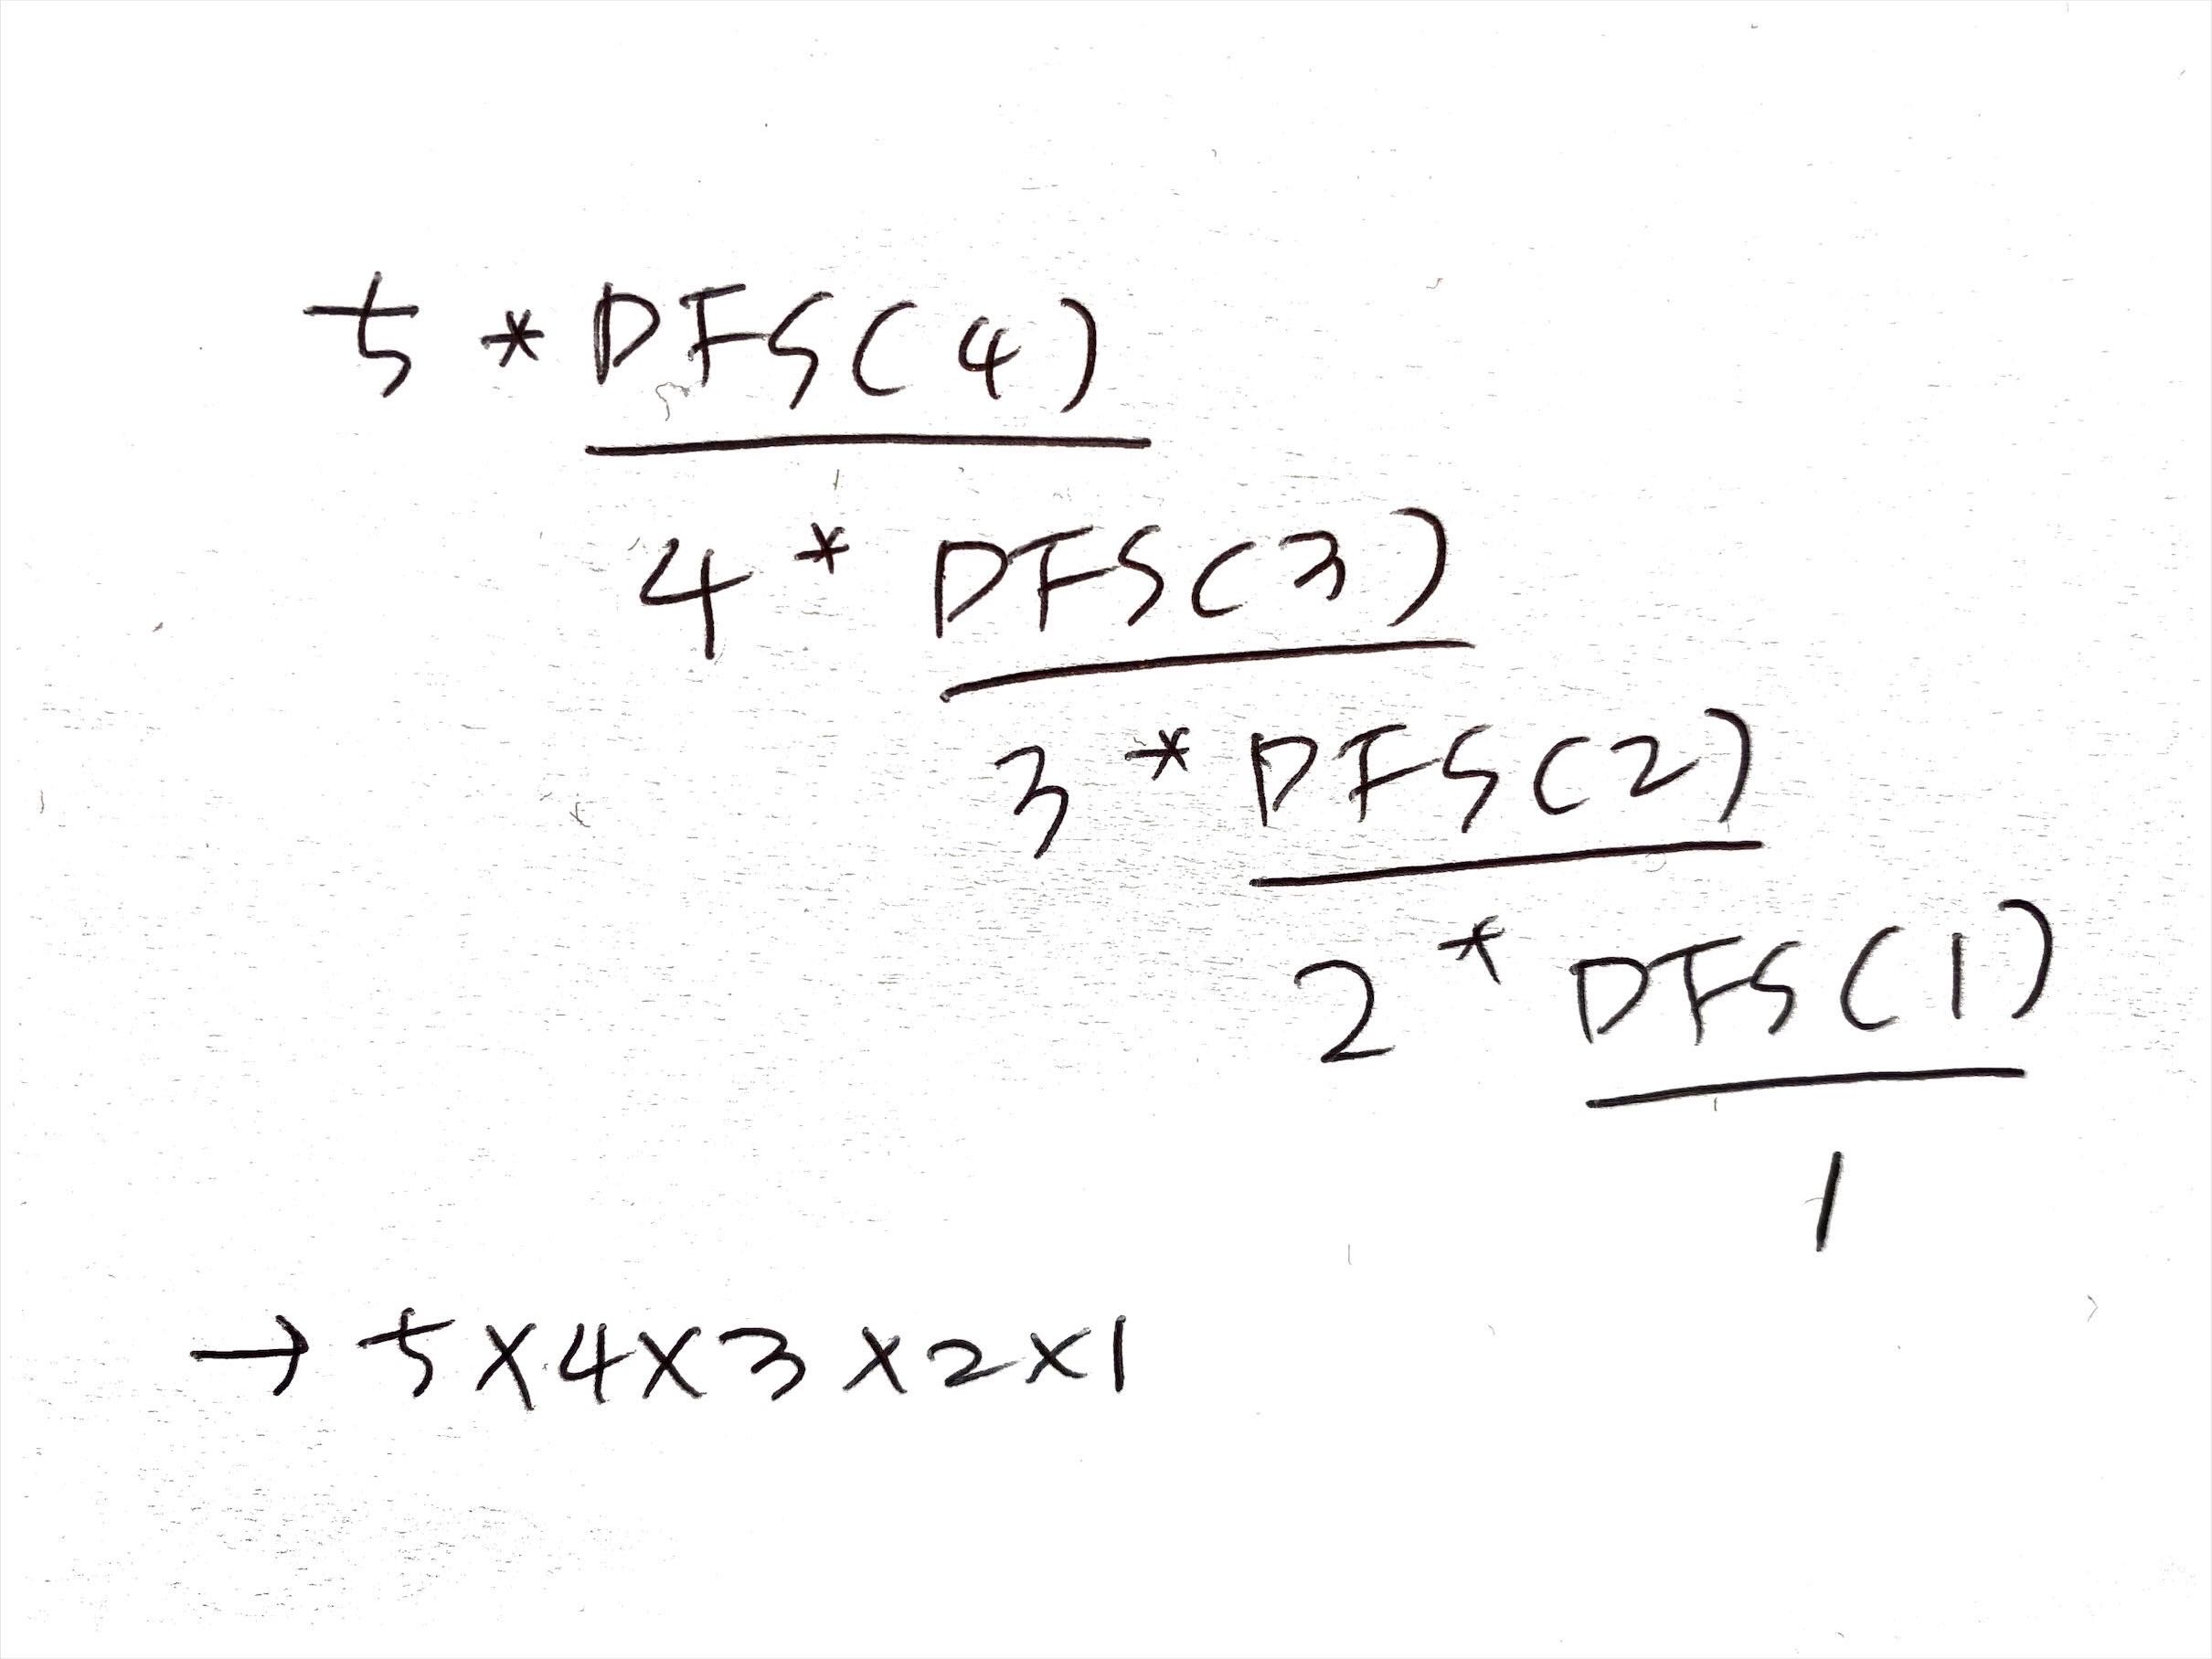 5 * DFS(4)
4 * DFS(3)
3 * DFS(2)
2 * DFS(1)
1
→ 5×4×3×2×1